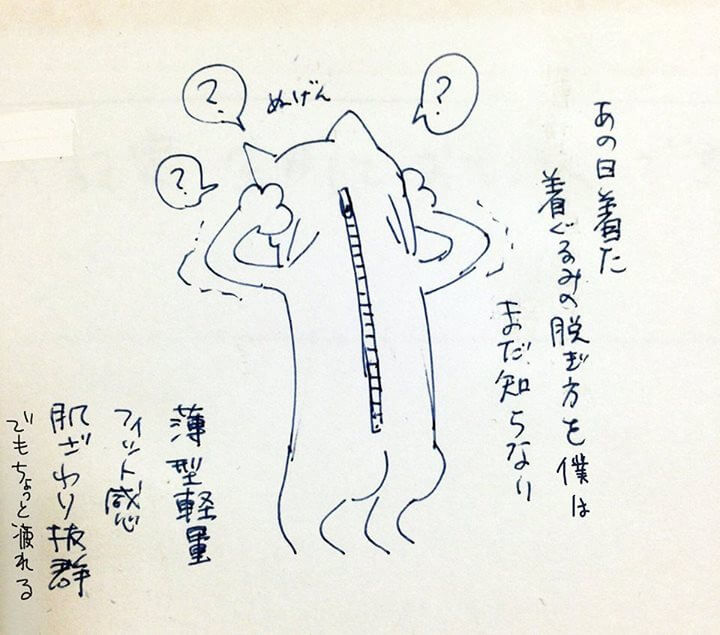 あの日着た
着ぐるみの脱ぎ方を僕は
まだ知らない
?
ぬげん
?
?
薄型軽量
フィット感
肌ざわり抜群
でもちょっと疲れる